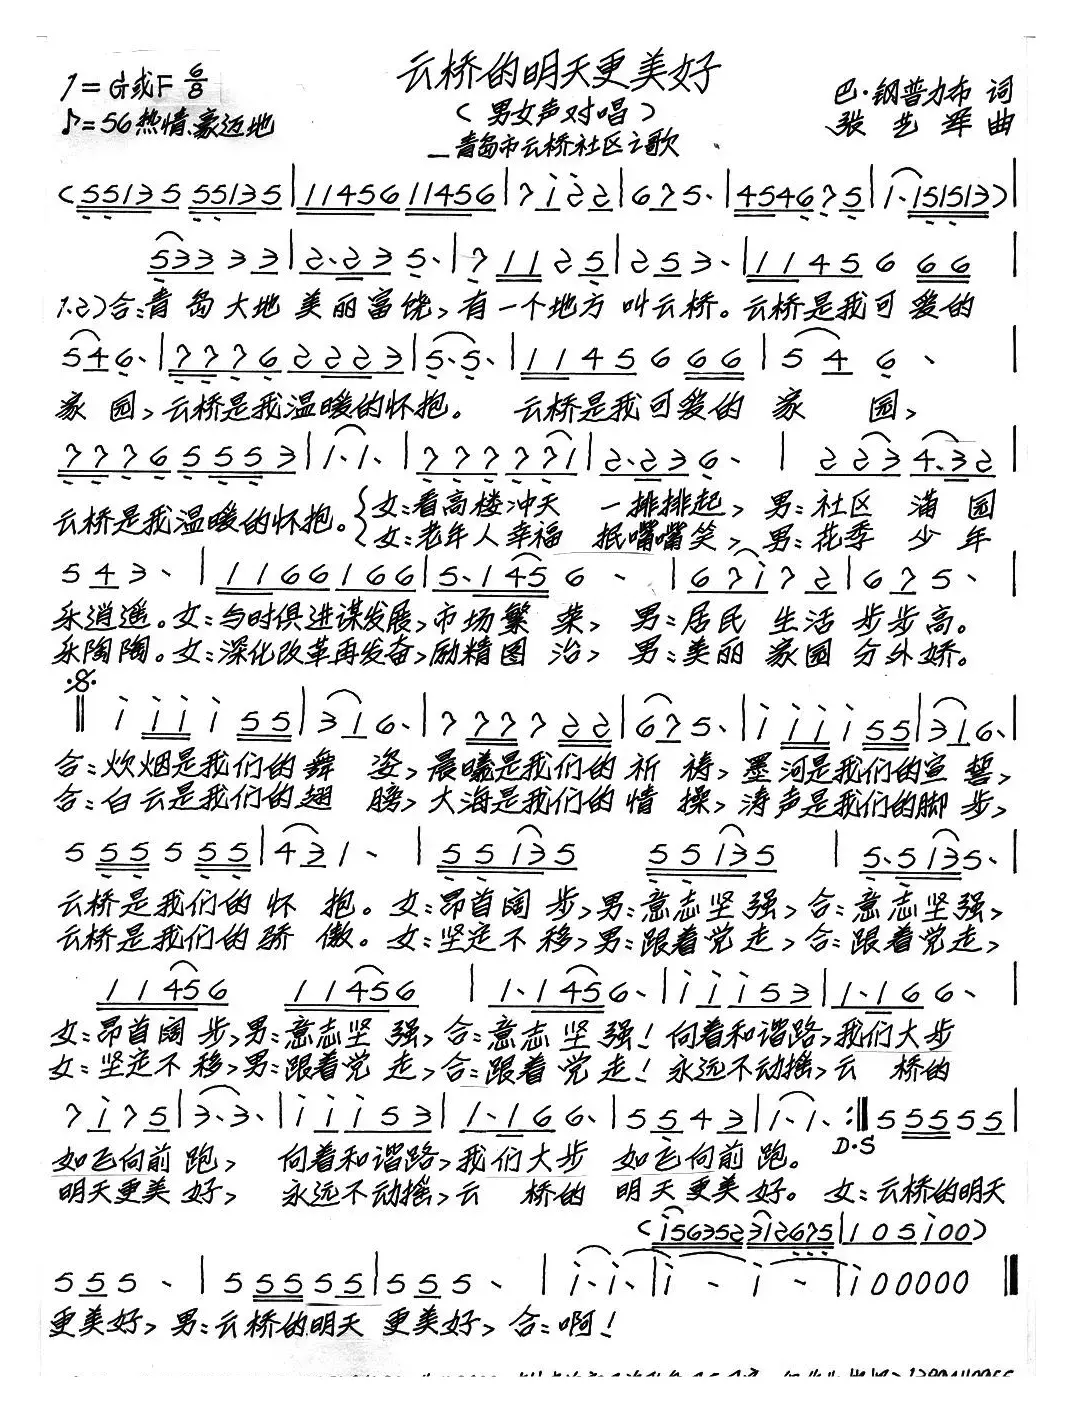 云桥的明天更美好
1=G或F 6/8
(男女声对唱)
巴·钢普力布 词
♪=56 热情、豪迈地
张艺军 曲
—青岛市云桥社区之歌
(55135 55135|11456 11456|7 i 2 2|6 7 5·|4546 7 5|1·151513)|
53333 3|2·23 5·|7 11 2 5|2 5 3·|1145 6 66|
1.2)合:青岛大地美丽富饶,有一个地方叫云桥。云桥是我可爱的
546·|7776 2223|5·5·|1145 6 66|5 4 6·|
家园,云桥是我温暖的怀抱。 云桥是我可爱的 家 园,
7776 5553|1·1·|777771|2·23 6·|2 23 4·32|
云桥是我温暖的怀抱。{女:看高楼冲天 一排排起,男:社区 满园
女:老年人幸福 抿嘴嘴笑,男:花季 少年
5 4 3·|1166166|5·145 6·|67i72|6 7 5·|
乐逍遥。女:与时俱进谋发展,市场繁 荣, 男:居民 生活 步步高。
乐陶陶。女:深化改革再发奋,励精图 治, 男:美丽 家园 分外娇。
i iii 55|3 1 6·|7 777 22|6 7 5·|i iii 55|3 1 6·|
合:炊烟是我们的舞 姿,晨曦是我们的祈 祷,墨河是我们的宣 誓,
合:白云是我们的翅 膀,大海是我们的情 操,涛声是我们的脚 步,
5 55 5 55|4 3 1·|55135 55135|5·5135·|
云桥是我们的怀 抱。女:昂首阔 步,男:意志坚 强,合:意志坚强,
云桥是我们的骄 傲。女:坚定不 移,男:跟着党 走,合:跟着党走,
11456 11456|1·1456·|iii53|1·166·|
女:昂首阔 步,男:意志坚 强,合:意志坚 强!向着和谐路,我们大步
女:坚定不 移,男:跟着党 走,合:跟着党 走!永远不动摇,云 桥的
7i75|3·3·|iii53|1·166·|5543|1·1·:‖555555|
D·S
如飞向前 跑, 向着和谐路,我们大步 如飞向前 跑。
明天更美 好, 永远不动摇,云 桥的 明天更美 好。 女:云桥的明天
(i56352 312675|105i00)
5 5 5·|555555|5 5 5·|i·i·|i - i -|i00000‖
更美好,男:云桥的明天 更美好,合:啊!